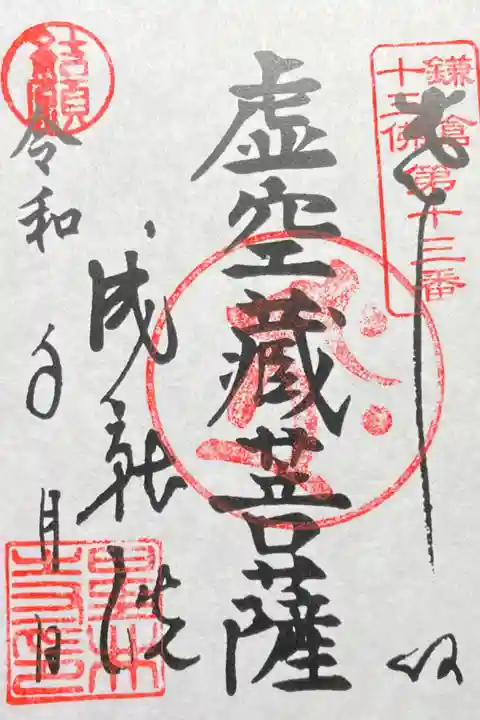 鎌倉第十三番
十三佛
奉
拝
虚空蔵菩薩
成就院
結願
令和 年 月 日